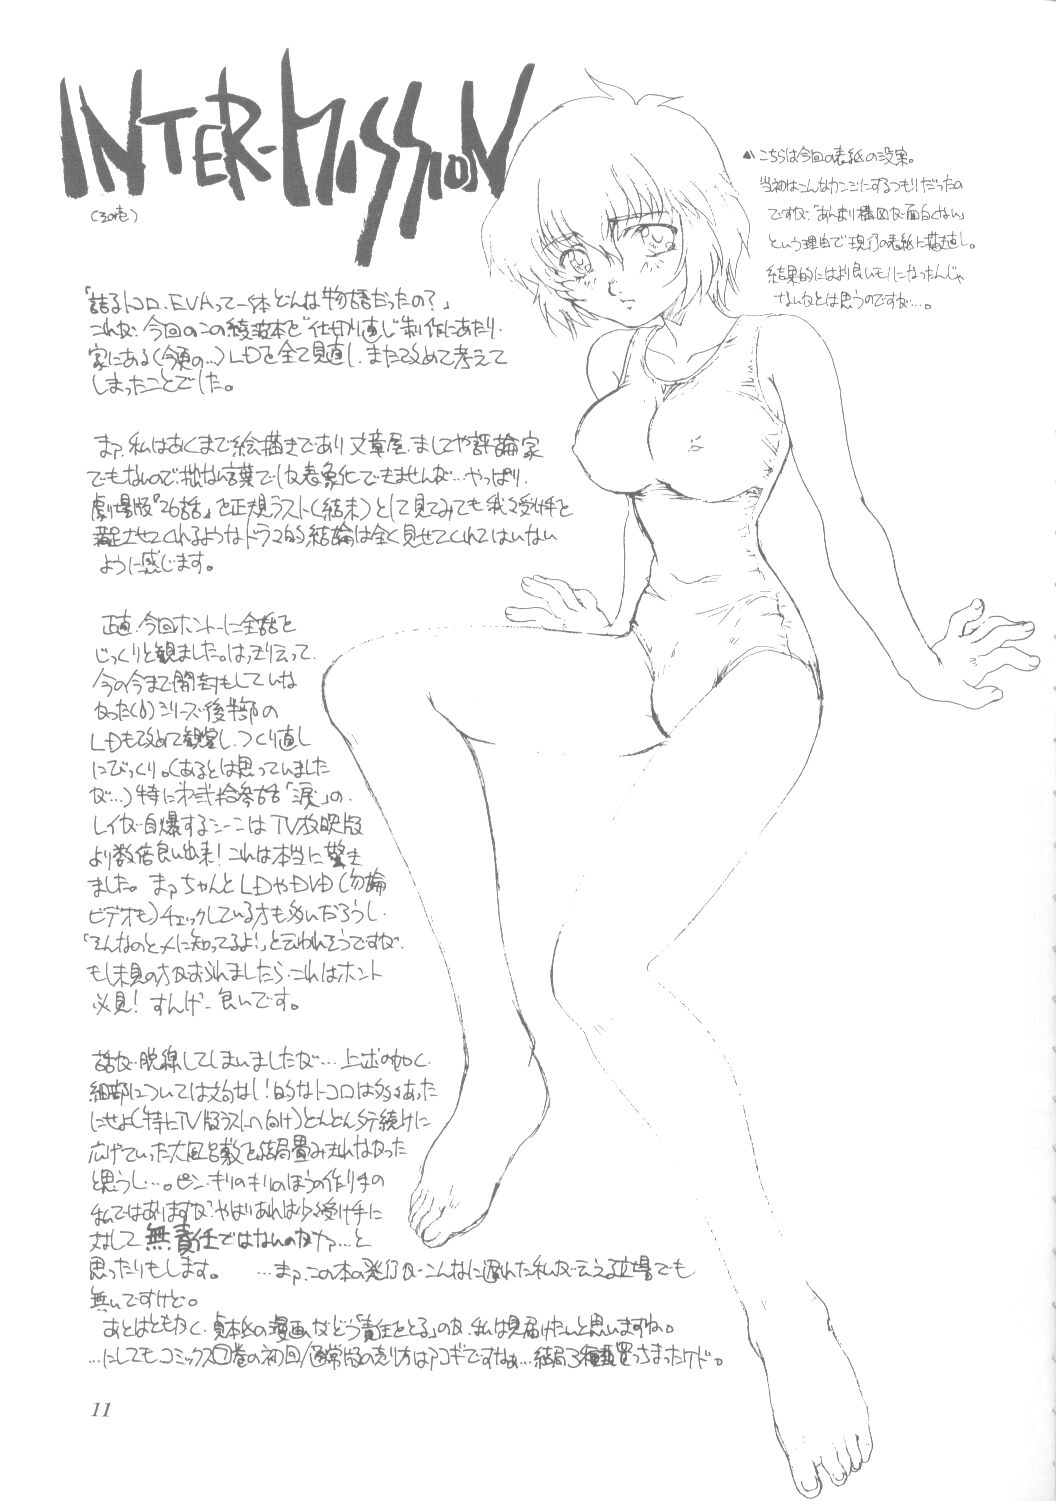 INTER-MISSION
(その壱)
▲こちらは今回の表紙の没案。
当初はこんなカンジにするつもりだったの
ですが「あんまり構図が面白くない」
という理由で現行の表紙に描き直し。
結果的にはより良いモノになったんじゃ
ないかとは思うのですが…。
「詰るトコロ、EVAって一体どんな物語だったの?」
これが、今回のこの綾波本を"仕切り直し"制作にあたり、
家にある(今更の…)LDを全て見直し、また改めて考えて
しまったことでした。
まァ、私はあくまで絵描きであり文章屋、ましてや評論家
でもないので、拙ない言葉でしか表象化できませんが…やっぱり、
劇場版『26話』を正規ラスト(結末)として見てみても我々受け手を
満足させてくれるようなドラマ的結論は全く見せてくれてはいない
ように感じます。
正直、今回ホントーに全話を
じっくりと観ました。はっきりえって、
今の今まで開封もしていな
かった(汗)シリーズ後半部の
LDも改めて観賞し、つくり直し
にびっくり。(あるとは思っていました
が…)特に第弐拾参話「涙」の、
レイが自爆するシーンはTV放映版
より数倍良い出来!これは本当に驚き
ました。まァちゃんとLDやDVD(勿論
ビデオも)チェックしている方も多いだろうし、
「そんなのとっくに知ってるよ!」と云われそうですが、
もし未見の方がおられましたら、これはホント
必見!すんげー良いです。
話が脱線してしまいましたが…上述の如く、
細部については文句なし!的なトコロは多々あった
にせよ(特にTV版ラストへ向け)どんどんタテ続けに
広げていった大風呂敷を結局畳みきれなかった
と思うし…。ピン・キリのキリのほうの作り手の
私ではありますが、やはりあれは少々受け手に
対して無責任ではないのかァ…と
思ったりもします。 …まァ、この本の発行が、こんなに遅れた私が云える立場でも
無いですけど。
あとはともかく、貞本氏の漫画がどう「責任をとる」のか、私は見届けたいと思いますね。
…にしてもコミックス⑦巻の初回/通常版の売り方はアコギですなぁ…結局3種買っちまったケド。
11